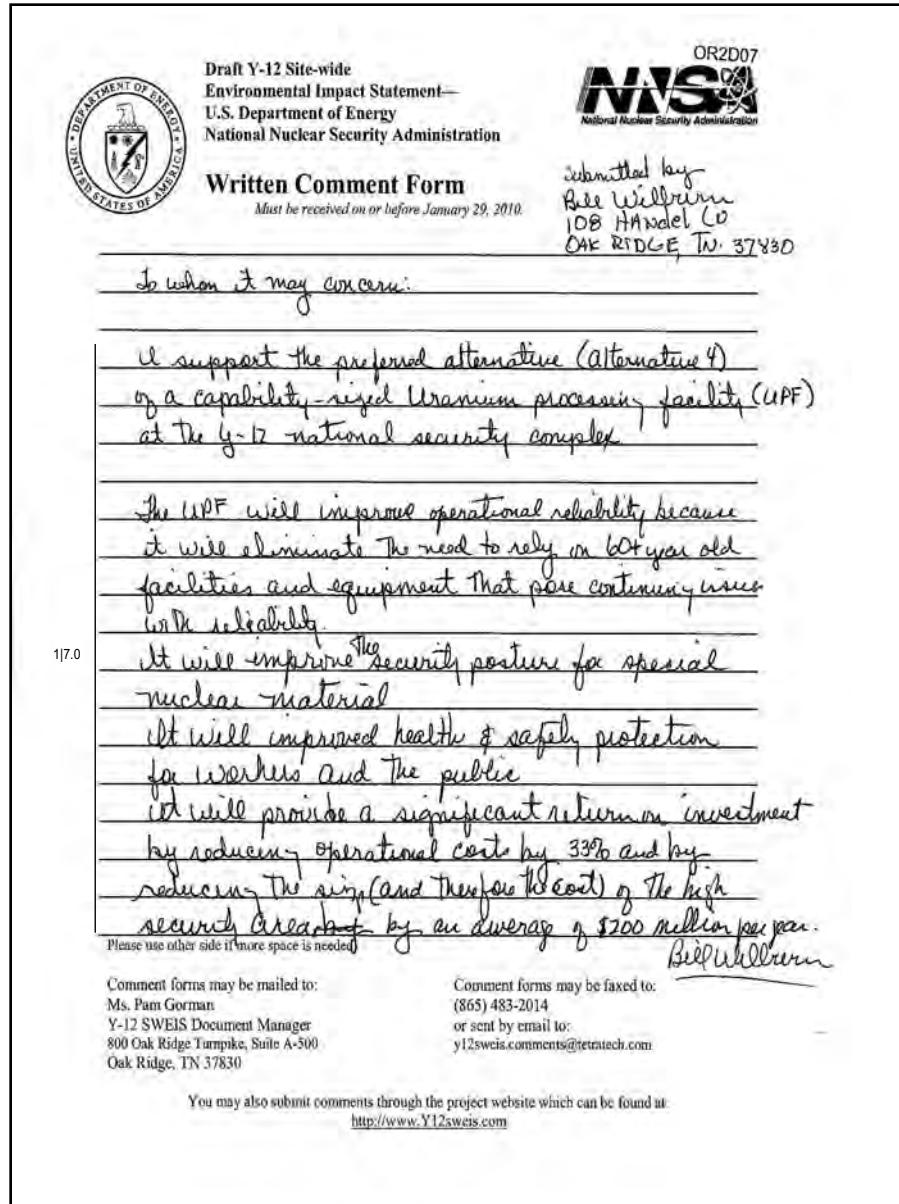 OR2D07
Draft Y-12 Site-wide
Environmental Impact Statement—
U.S. Department of Energy
National Nuclear Security Administration
DEPARTMENT OF ENERGY
UNITED STATES OF AMERICA
NNSA
National Nuclear Security Administration
Written Comment Form
Must be received on or before January 29, 2010.
Submitted by
Bill Wilburn
108 HANdel
OAK RIDGE, TN. 37830
To whom it may concern:
I support the preferred alternative (alternative 4)
of a capability-sized Uranium processing facility (UPF)
at the Y-12 national security complex
The UPF will improve operational reliability because
it will eliminate the need to rely on 60+ year old
facilities and equipment that pose continuing issues
with reliability.
1|7.0
It will improve the security posture for special
nuclear material
It will improved health & safety protection
for workers and the public
it will provide a significant return on investment
by reducing operational costs by 33% and by
reducing the size (and therefore the cost) of the high
security area by an average of $200 million per year.
Please use other side if more space is needed
Bill Wilburn
Comment forms may be mailed to:
Ms. Pam Gorman
Y-12 SWEIS Document Manager
800 Oak Ridge Turnpike, Suite A-500
Oak Ridge, TN 37830
Comment forms may be faxed to:
(865) 483-2014
or sent by email to:
y12sweis.comments@tetratech.com
You may also submit comments through the project website which can be found at
http://www.Y12sweis.com